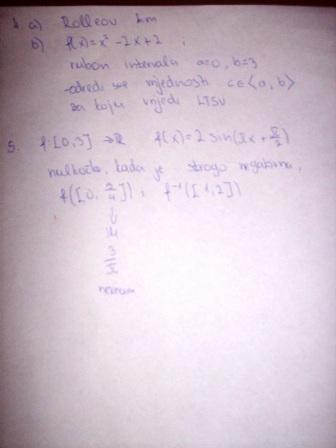 4. a) Rolleov tm
b) f(x) = x² - 2x + 2 ;
rubovi intervala a=0, b=3
- odredi sve vrijednosti c ∈ <a, b>
za koju vrijedi LTSV
5. f: [0,3] → R f(x) = 2 sin(πx + π/2)
nultočke, kada je strogo negativna,
f([0, ]) ; f⁻¹([1,2])